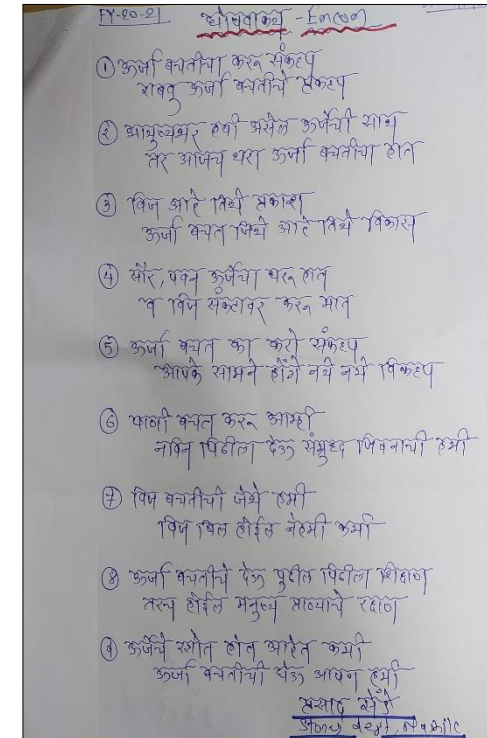 FY-20-21
घोषवाक्य - Encon
① ऊर्जा बचतीचा करू संकल्प
राबवु ऊर्जा बचतीचे प्रकल्प
② आयुष्यभर हवी असेल ऊर्जेची साथ
तर आजच धरा ऊर्जा बचतीचा हात
③ विज आहे तिथे प्रकाश
ऊर्जा बचत जिथे आहे तिथे विकास
④ सौर, पवन ऊर्जेचा धरू हात
व विज संकटावर करू मात
⑤ ऊर्जा बचत का करो संकल्प
आपके सामने होंगे नये नये विकल्प
⑥ पाणी बचत करू आम्ही
नविन पिढीला देऊ संमृध्द जिवनाची हमी
⑦ विज बचतीची जेथे हमी
विज बिल होईल नेहमी कमी
⑧ ऊर्जा बचतीचे देऊ पुढील पिढीला शिक्षण
तरच होईल मनुष्य प्राण्याचे रक्षण
⑨ ऊर्जेचे स्त्रोत होत आहेत कमी
ऊर्जा बचतीची घेऊ आपण हमी
प्रसाद